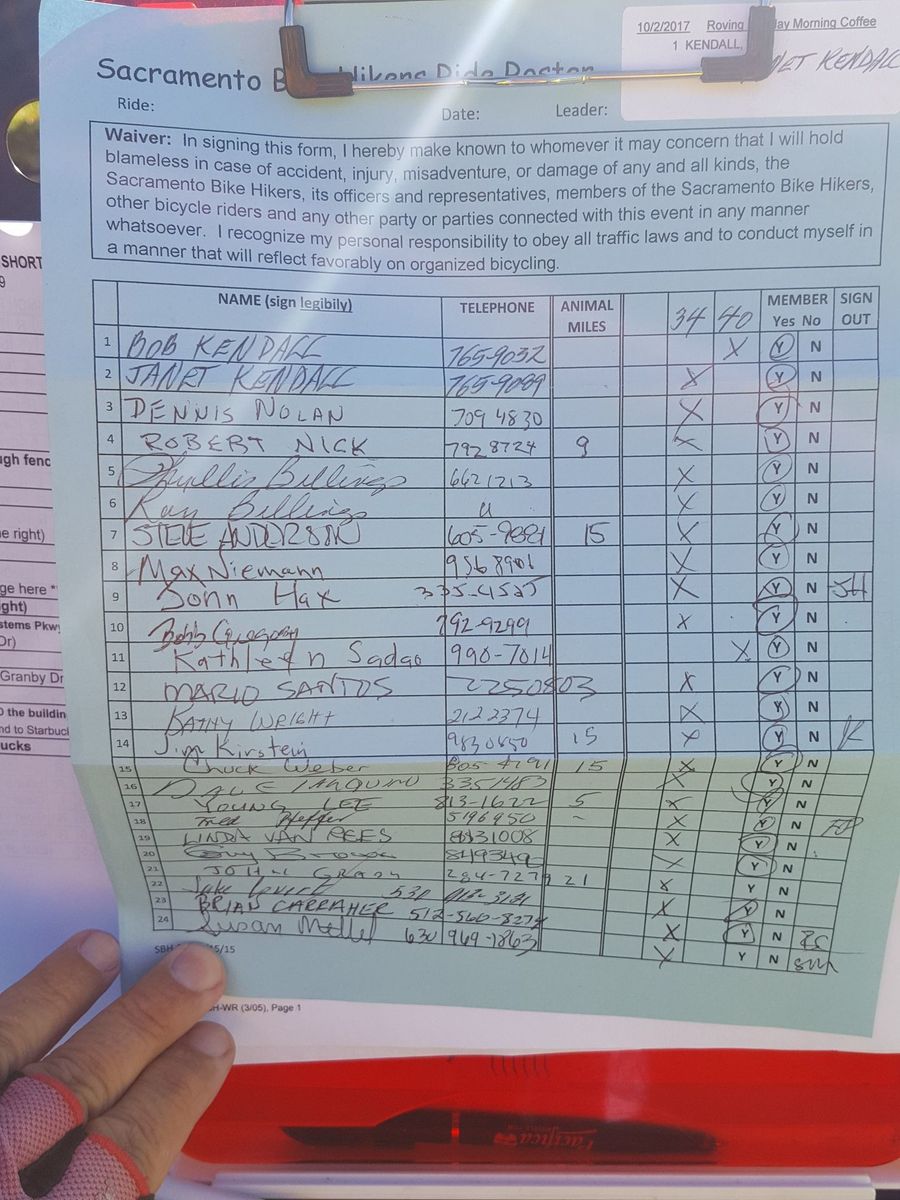 10/2/2017 Roving day Morning Coffee
1 KENDALL,
JANET KENDALL
Sacramento Bike Hikers Ride Roster
Ride: Date: Leader:
Waiver: In signing this form, I hereby make known to whomever it may concern that I will hold
blameless in case of accident, injury, misadventure, or damage of any and all kinds, the
Sacramento Bike Hikers, its officers and representatives, members of the Sacramento Bike Hikers,
other bicycle riders and any other party or parties connected with this event in any manner
whatsoever. I recognize my personal responsibility to obey all traffic laws and to conduct myself in
a manner that will reflect favorably on organized bicycling.
NAME (sign legibily) TELEPHONE ANIMAL MILES 34 40 MEMBER Yes No SIGN OUT
1 BOB KENDALL 765-9032 X Y N
2 JANET KENDALL 765-9089 X Y N
3 DENNIS NOLAN 709 4830 X Y N
4 ROBERT NICK 792 8724 9 X Y N
5 Phyllis Billings 662 1213 X Y N
6 Ray Billings " X Y N
7 STEVE ANDERSON 15 X Y N
8 Max Niemann X Y N
9 John Hax X Y N JH
10 Bobb Gregory 792-9299 X Y N
11 Kathleen Sadao 990-7014 X Y N
12 MARIO SANTOS 2250803 X Y N
13 KATHY WRIGHT 212 2374 X Y N
14 Jim Kirstein 15 X Y N
15 Chuck Weber 15 X Y N
16 DALE X Y N
17 YOUNG LEE 813-1622 5 X Y N
18 Fred Pfeffer 5196950 - X Y N FP
19 LINDA VAN X Y N
20 Guy X Y N
21 JOHN 284-7279 21 X Y N
22 Jake 530 X Y N
23 BRIAN CARRAHER 512-560-8274 X Y N BC
24 Susan 630 969-1863 X Y N SM
SBH 15/15
H-WR (3/05), Page 1
SHORT
9
ugh fenc
e right)
ge here *
ght)
stems Pkwy
Dr)
Granby Dr
O the buildin
nd to Starbuc
ucks
Pacifica